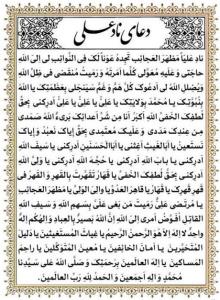 دعای ناد علی
ناد علیاً مظهر العجائب تجده عوناً لک فی النوائب لی الی الله
حاجتی و علیه معولی کلما امرته و رمیت منقضی فی ظل الله
و یضلل الله لی ادعوک کل هم و غم سینجلی بعظمتک یا الله
بنبوتک یا محمد بولایتک یا علی یا علی یا علی ادرکنی
بحق لطفک الخفی الله اکبر انا من شر اعدائک بریء الله صمدی
من عندک مددی و علیک معتمدی بحق ایاک نعبد و ایاک
نستعین یا ابالغیث اغثنی یا اباالحسنین ادرکنی یا سیف الله
ادرکنی یا باب الله ادرکنی یا حجة الله ادرکنی یا ولی الله
ادرکنی بحق لطفک الخفی یا قهار تقهرت بالقهر و القهر فی
قهر قهرک یا قهار یا قاهر العدو یا والی الولی یا مظهر العجائب
یا مرتضی علی رمیت من بغی علی بسهم الله و سیف الله
القاتل افوض امری الی الله ان الله بصیر بالعباد و الهکم اله
واحد لا اله الا هو الرحمن الرحیم یا غیاث المستغیثین یا دلیل
المتحیرین یا امان الخائفین یا معین المتوکلین یا راحم
المساکین یا اله العالمین برحمتک و صلی الله علی سیدنا
محمد و اله اجمعین و الحمد لله رب العالمین.